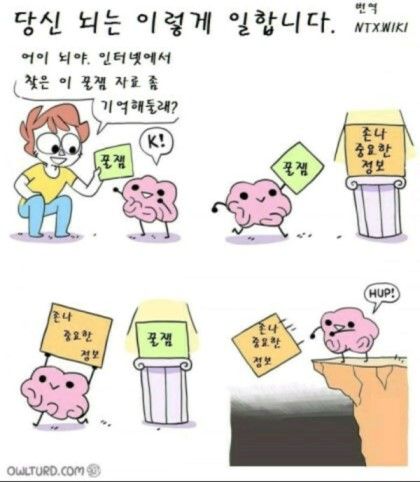 당신 뇌는 이렇게 일합니다.
번역
NTX.WIKI
어이 뇌야. 인터넷에서
찾은 이 꿀잼 자료 좀
기억해둘래?
꿀잼
K!
꿀잼
존나
중요한
정보
존나
중요한
정보
꿀잼
HUP!
존나
중요한
정보
OWLTURD.COM